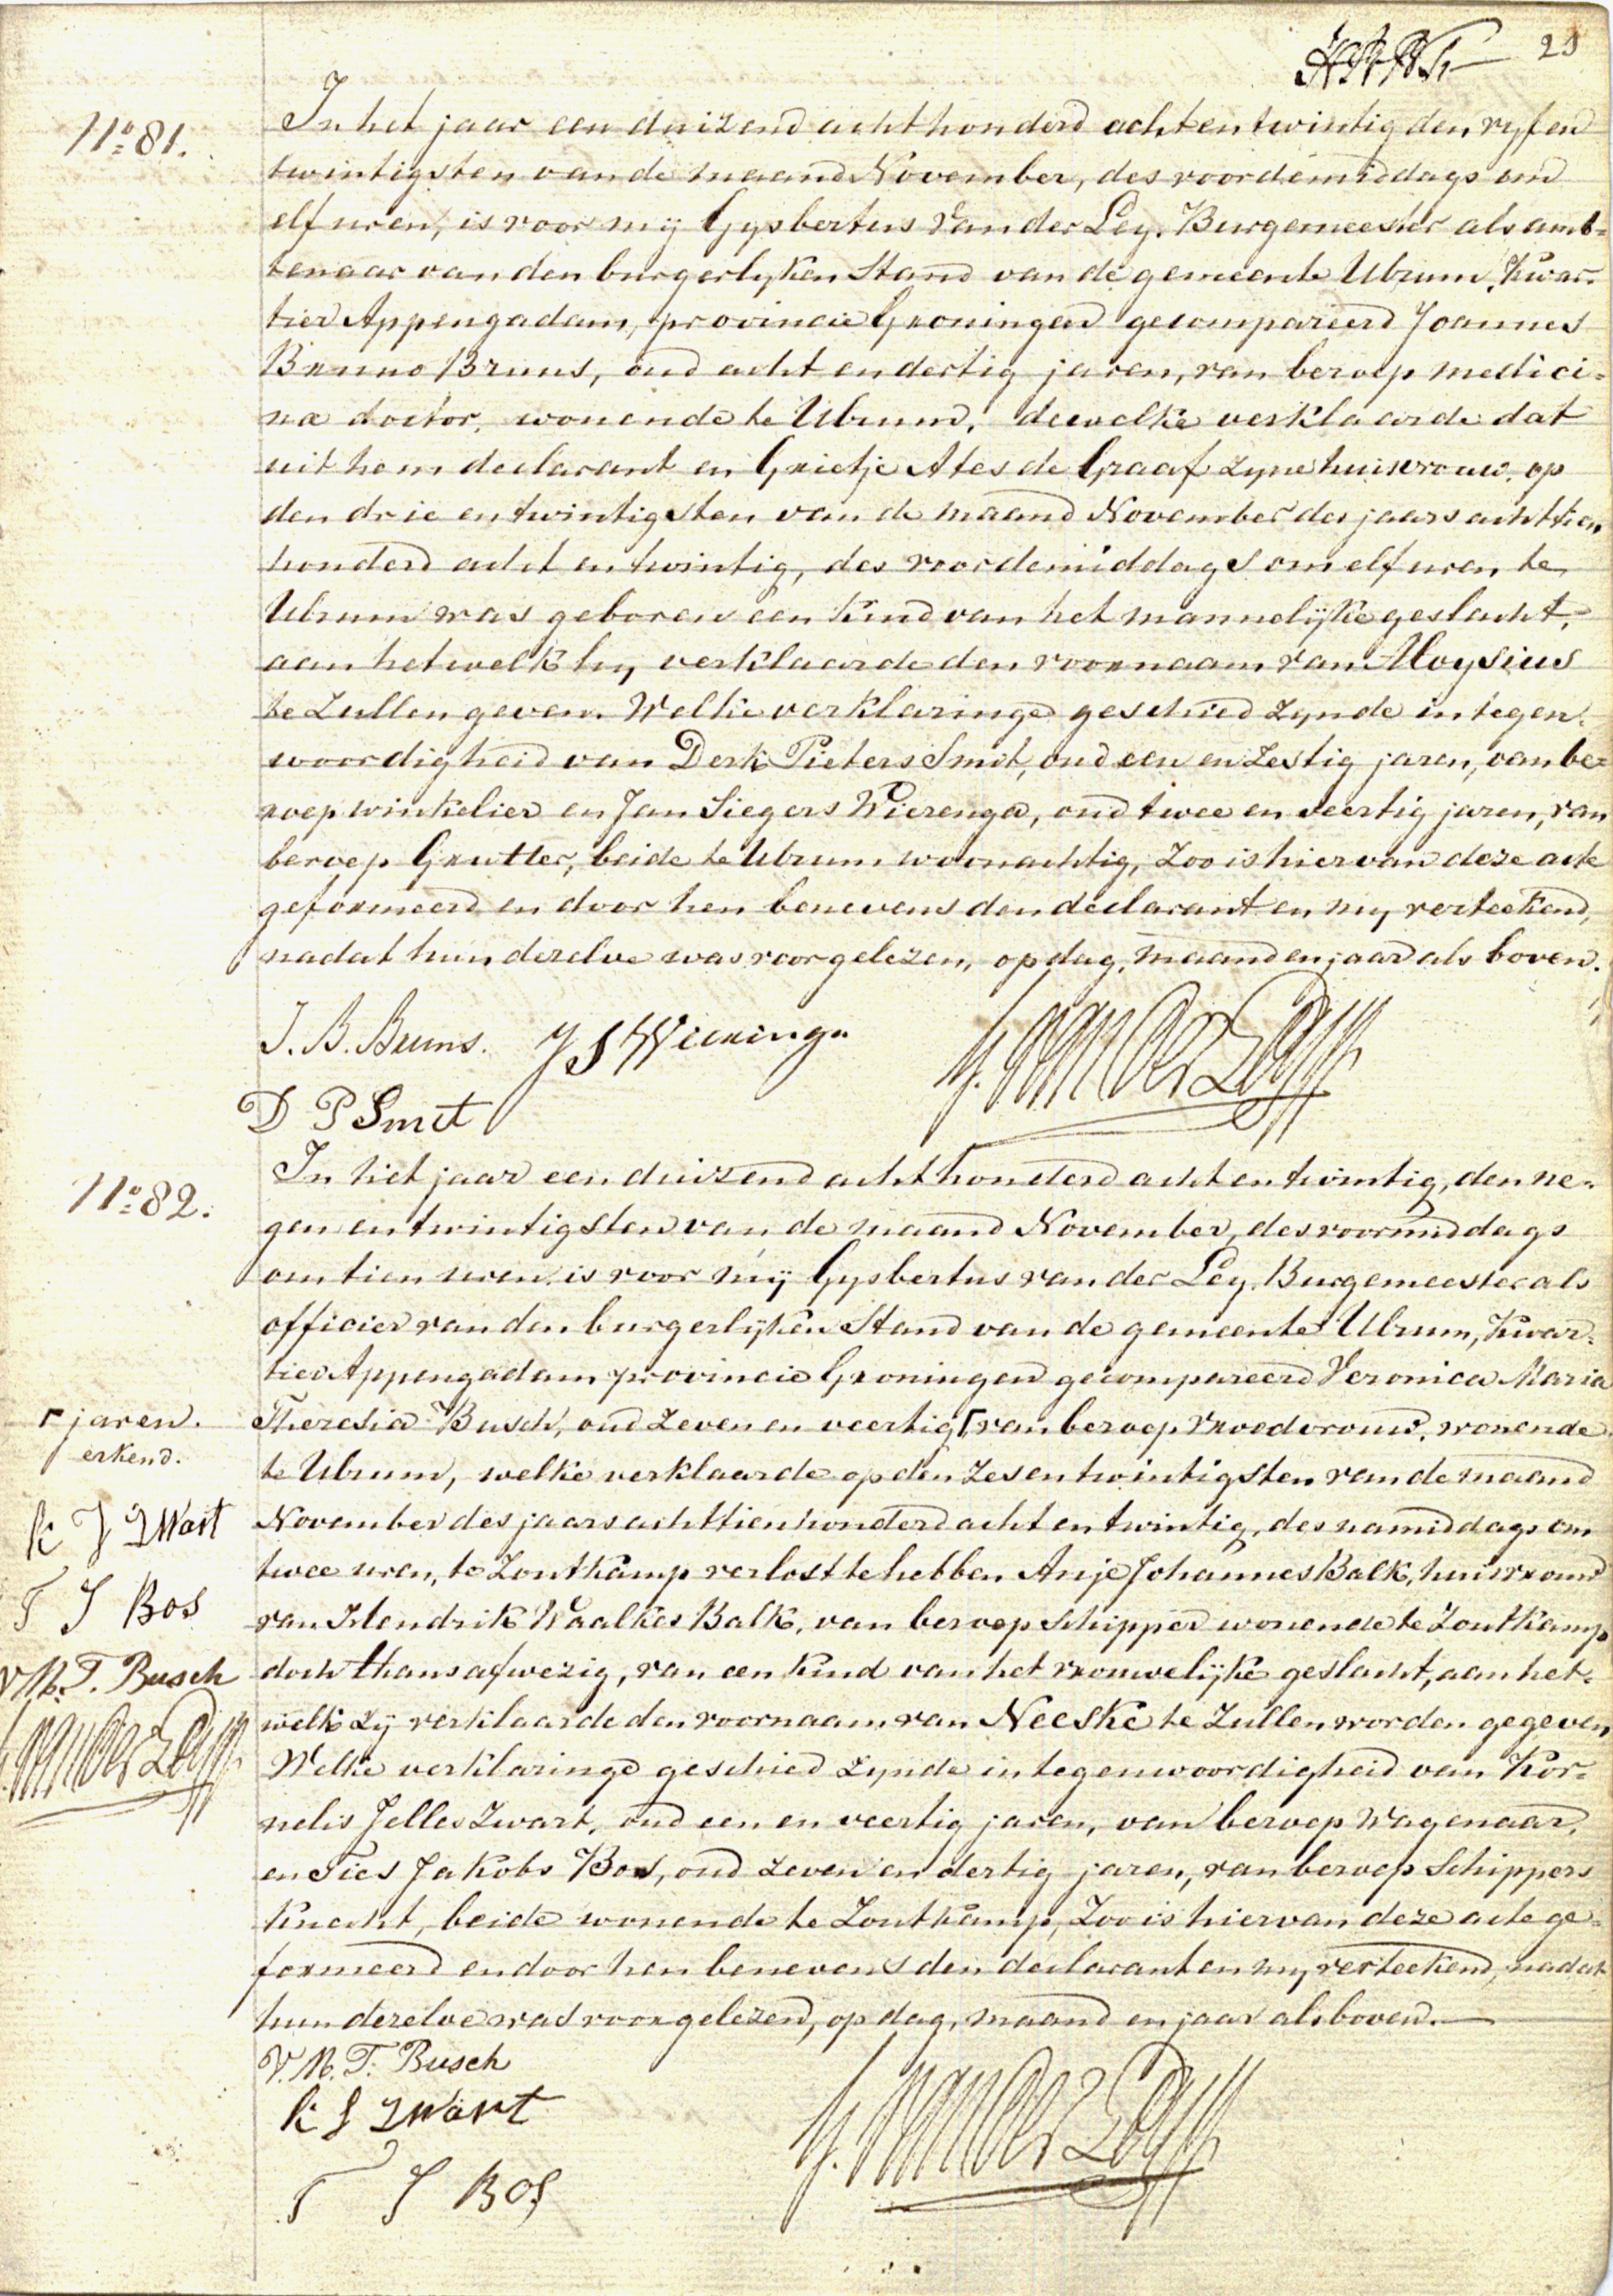 21
N.º 81.
In het jaar een duizend acht honderd acht en twintig den vyf en
twintigsten van de maand November, des voordemiddags om
elf uren, is voor mij Gysbertus van der Ley, Burgemeester als amb=
tenaar van den burgerlyken Stand van de gemeente Ulrum, Kwar=
tier Appengadam, provincie Groningen gecompareerd Joannes
Bruno Bruns, oud acht en dertig jaren, van beroep medici=
næ doctor, wonende te Ulrum, dewelke verklaarde dat
uit hem declarant en Grietje Ates de Graaf zyne huisvrouw, op
den drie en twintigsten van de maand November des jaars achttien
honderd acht en twintig, des voordemiddags om elf uren, te
Ulrum was geboren een kind van het mannelijke geslacht,
aan hetwelk hy verklaarde den voornaam van Aloysius
te zullen geven. Welke verklaringe geschied zynde in tegen=
woordigheid van Derk Pieters Smit, oud een en zestig jaren, van be=
roep winkelier en Jan Siegers Wierenga, oud twee en veertig jaren, van
beroep Grutter, beide te Ulrum woonachtig, zoo is hiervan deze acte
geformeerd en door hen benevens den declarant en my verteekend,
nadat hun derzelve was voorgelezen, op dag, maand en jaar als boven.
J. B. Bruns. J S Wieringa G. van der Ley
D P Smit
N.º 82.
In het jaar een duizend acht honderd acht en twintig, den ne=
gen en twintigsten van de maand November, des voormiddags
om tien uren, is voor mij Gysbertus van der Ley, Burgemeester als
officier van den burgerlijken Stand van de gemeente Ulrum, Kwar=
tier Appengadam provincie Groningen gecompareerd Veronica Maria
Theresia Busch, oud zeven en veertig ⌈ van beroep vroedvrouw, wonende
te Ulrum, welke verklaarde op den zes en twintigsten van de maand
November des jaars achttien honderd acht en twintig, des namiddags om
twee uren, te Zoutkamp verlost te hebben Anje Johannes Balk, huisvrouw
van Hendrik Waalkes Balk, van beroep Schipper wonende te Zoutkamp
doch thans afwezig, van een kind van het vrouwelijke geslacht, aan het=
welk zij verklaarde den voornaam van Neeske te zullen worden gegeven,
Welke verklaringe geschied zynde in tegenwoordigheid van Kor=
nelis Jelles Zwart, oud een en veertig jaren, van beroep Wagenaar,
en Ties Jakobs Bos, oud zeven en dertig jaren, van beroep Schippers
knecht, beide wonende te Zoutkamp, Zoo is hiervan deze acte ge=
formeerd en door hen benevens den declarant en my verteekend, nadat
hun derzelve was voorgelezen, op dag, maand en jaar als boven.
⌈ jaren.
erkend.
K J Zwart
T J Bos
V. M. T. Busch
G. van der Ley
V. M. T. Busch
K J Zwart
T J Bos
G. van der Ley